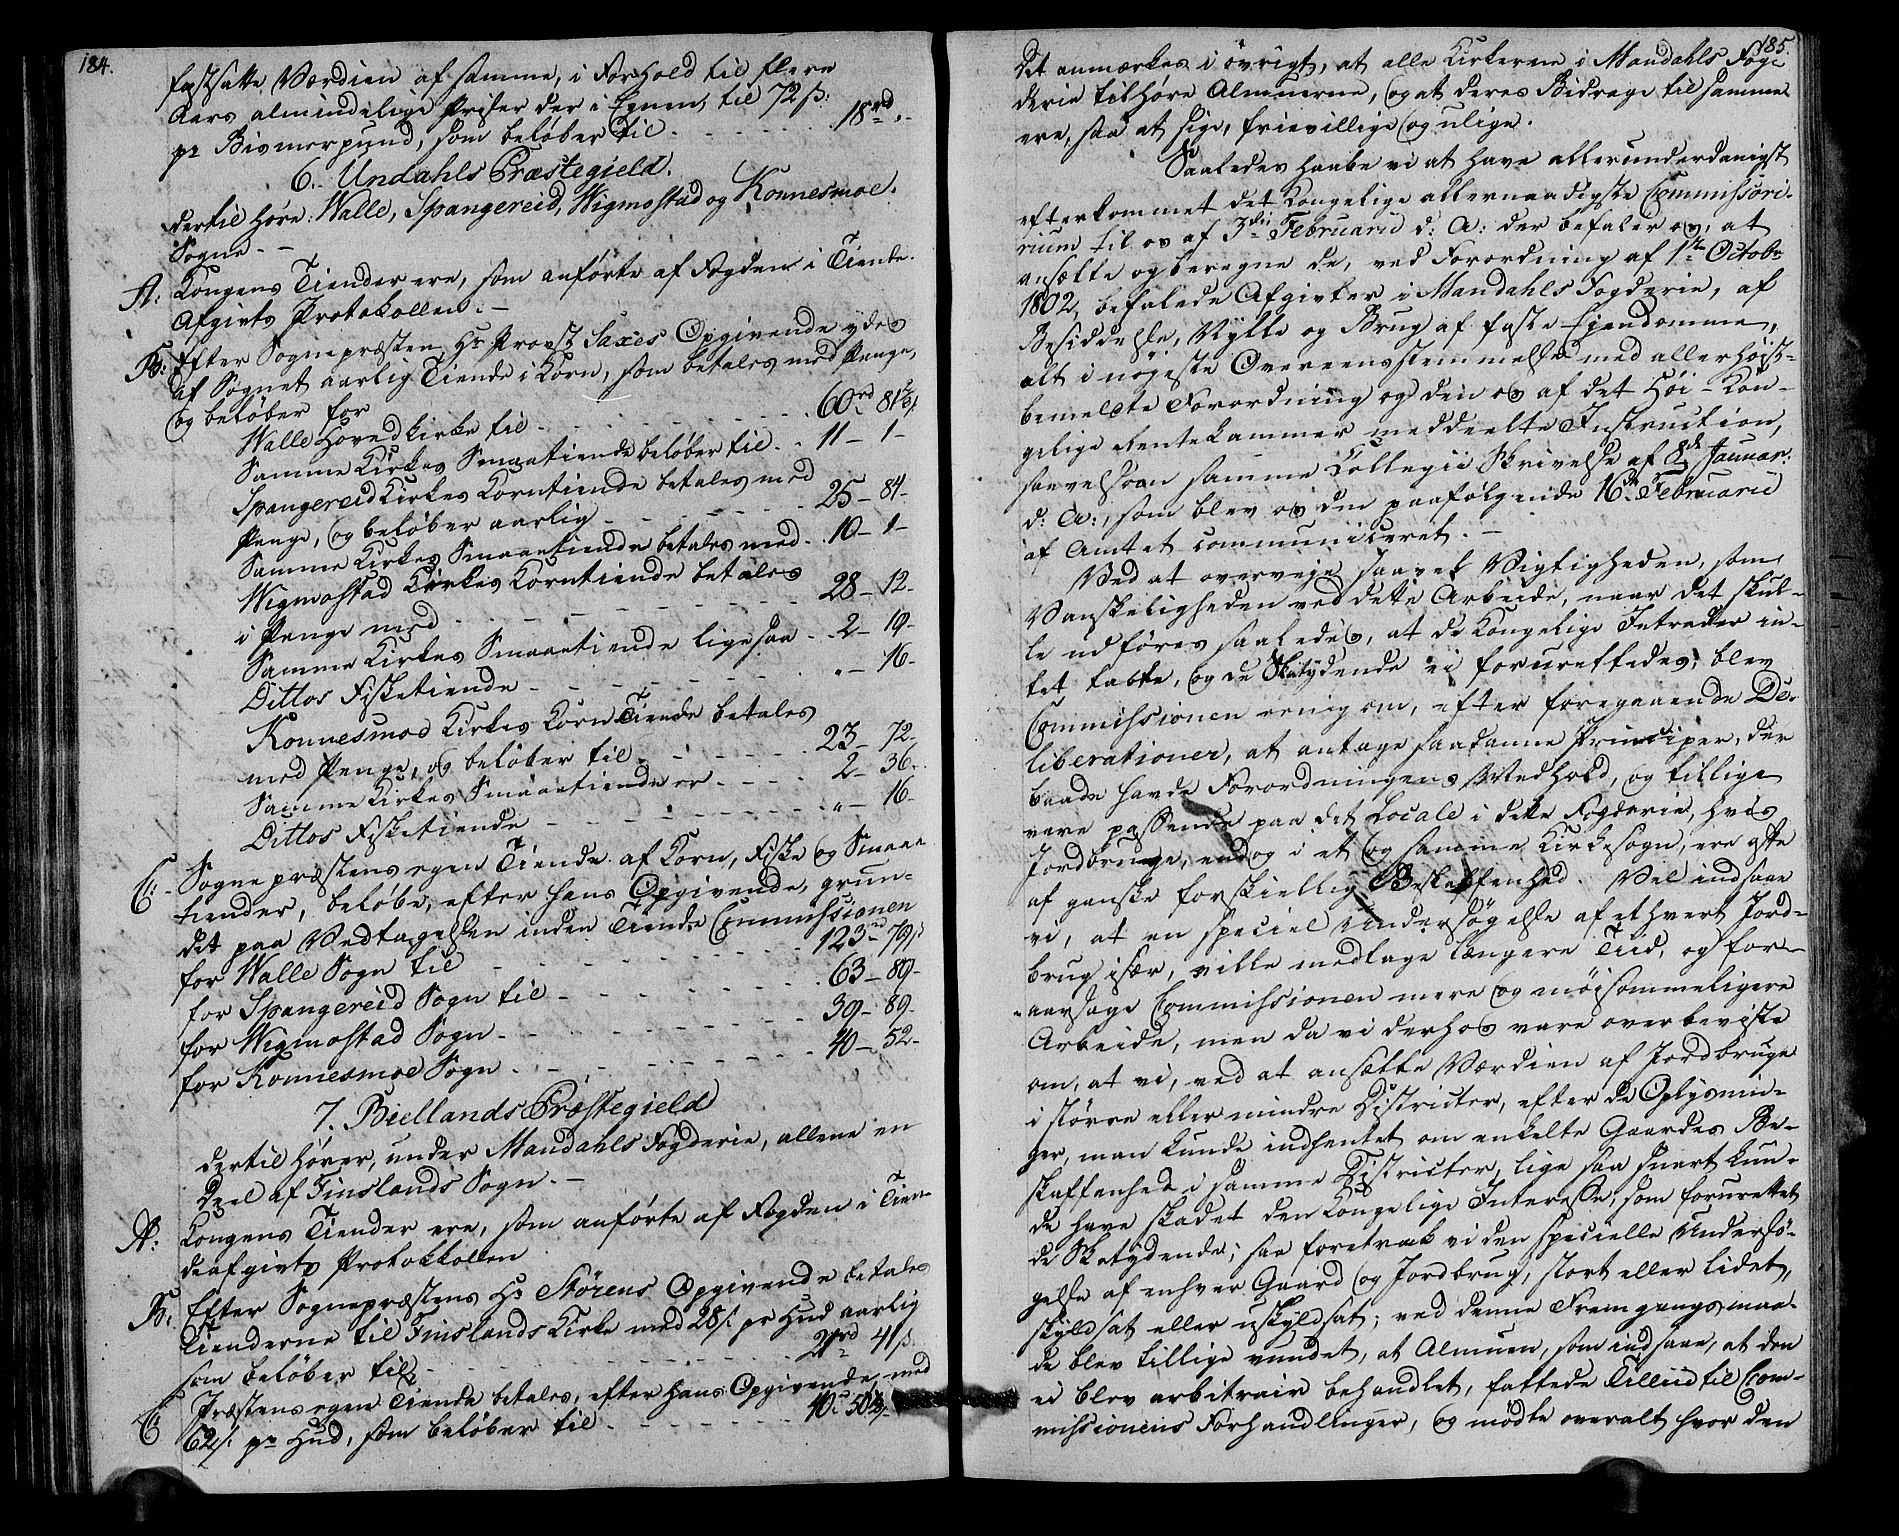 184.
fastsatte Værdien af samme, i Forhold til flere
Aars almindelige Priser der i Egnen, til 72 ß:
pr Bismerpund, som beløber til . - - - - - 18rd „-
6. Undahls Præstegield.
dertil høre: Walle, Spangereid, Wigmostad og Konnesmoe.
Sogne. -
A: Kongens Tiender ere, som anførte af Fogden i Tiende-
Afgivts Protokollen. -
B: Efter Sognepræsten Hr Provst Saxes Opgivende ydes
af Sognet aarlig Tiende i Korn, som betales med Penge,
og beløber for
Walle Hovedkirke til . - - - - - 60rd 81⅗ß
Samme Kirkes Smaatiende beløber til . . 11 - 1 -
Spangereid Kirkes Korntiende betales med
Penge, og beløber aarlig - - - - - 25 - 84 -
Samme Kirkes Smaaetiende betales med . . 10 - 1 -
Wigmostad Kirkes Korntiende betales
i Penge med - - - - - 28 - 12 -
Samme Kirkes Smaaetiende ligesaa . . 2 - 19 -
Dittos Fisketiende - - - - - „ - 16 -
Konnesmoe Kirkes Korn Tiende betales
med Penge, og beløber til - - - - 23 - 72 -
Samme Kirkes Smaaetiende er - - - - 2 - 36 -
Dittos Fisketiende - - - - - „ - 16 -
C: - Sognepræstens egen Tiende af Korn, Fiske og Smaae
tiender, beløbe, efter hans Opgivende, grun-
det paa Vedtagelsen inden Tiende Commissionen
for Walle Sogn til - - - - - 123rd 79ß
for Spangereid Sogn til - - - - - 63 - 89 -
for Wigmostad Sogn - - - - - 39 - 89 -
for Konnesmoe Sogn - - - - - 40 - 52 -
7. Biellands Præstegield
dertil hører, under Mandahls Fogderie, allene en
Deel af Finslands Sogn. -
A: Kongens Tiender ere, som anførte af Fogden i Tien-
deafgivts Protokollen
B: Efter Sognepræstens Hr Störens Opgivende betales
Tienderne til Finslands Kirke med 28 ß pr Hud aarlig
som beløber til - - - - - 21rd 41ß
C: Præstens egen Tiende betales, efter hans Opgivende, med
62 ß pr Hud, som beløber til - - - - -
185.
Det anmærkes i øvrigt, at alle Kirkerne i Mandahls Fog-
derie tilhøre Almuerne, og at deres Bidrage til samme
ere, saa at sige, frievillige og ulige.
Saaledes haabe vi at have allerunderdanigst
efterkommet det Kongelige allernaadigste Commissori-
rium til os af 3die Februarii d: A: der befaler os, at
ansætte og beregne de, ved Forordning af 1ste Octobr
1802, befalede Afgivter i Mandahls Fogderie, af
Besiddelse, Nytte og Brug af faste Ejendomme,
alt i nøjeste Overeensstemmelse med allerhøist-
bemeldte Forordning og den os af det Høi-Kon-
gelige Rentekammer meddeelte Instruction,
saavelsom samme Collegii Skrivelse af 8de Januar:
d: A:, som blev os den paafølgende 16de Februarii
af Amtet communiceret. -
Ved at overveje saavel Vigtigheden, som
Vanskeligheden ved dette Arbeide, naar det skul-
le udføres saaledes, at de Kongelige Intrader in-
tet tabte, og de Skatydende ei forurettedes, blev
Commissionen eenig om, efter foregaaende De-
liberationer, at antage saadanne Principer, der
baade havde Forordningens Medhold, og tillige
vare passende paa det Locale i dette Fogderie, hvis
Jordbruge, endog i et og samme Kirkesogn, ere ofte
af ganske forskiellig Beskaffenhed. Vel indsaae
vi, at en speciel Undersøgelse af ethvert Jord-
brug især, ville medtage længere Tiid, og for-
aarsage Commissionen mere og møisommeligere
Arbeide, men da vi derhos vare overbeviste
om, at vi, ved at ansætte Værdien af Jordbruge
i større eller mindre Districter, efter de Oplysnin-
ger, man kunde indhentet om enkelte Gaardes Be-
skaffenhed i samme Districter, lige saa snart kun-
de have skadet den Kongelige Interesse, som forurettet
de Skatydende; saa foretrak vi den specielle Undersø-
gelse af enhver Gaard og Jordbrug, stort eller lidet,
skyldsat eller uskyldsat; ved denne Fremgangsmaa-
de blev tillige vundet, at Almuen, som indsaae, at den
ei blev arbitrair behandlet, fattede Tilliid til Com-
missionens Forhandlinger, og mødte overalt hvor den